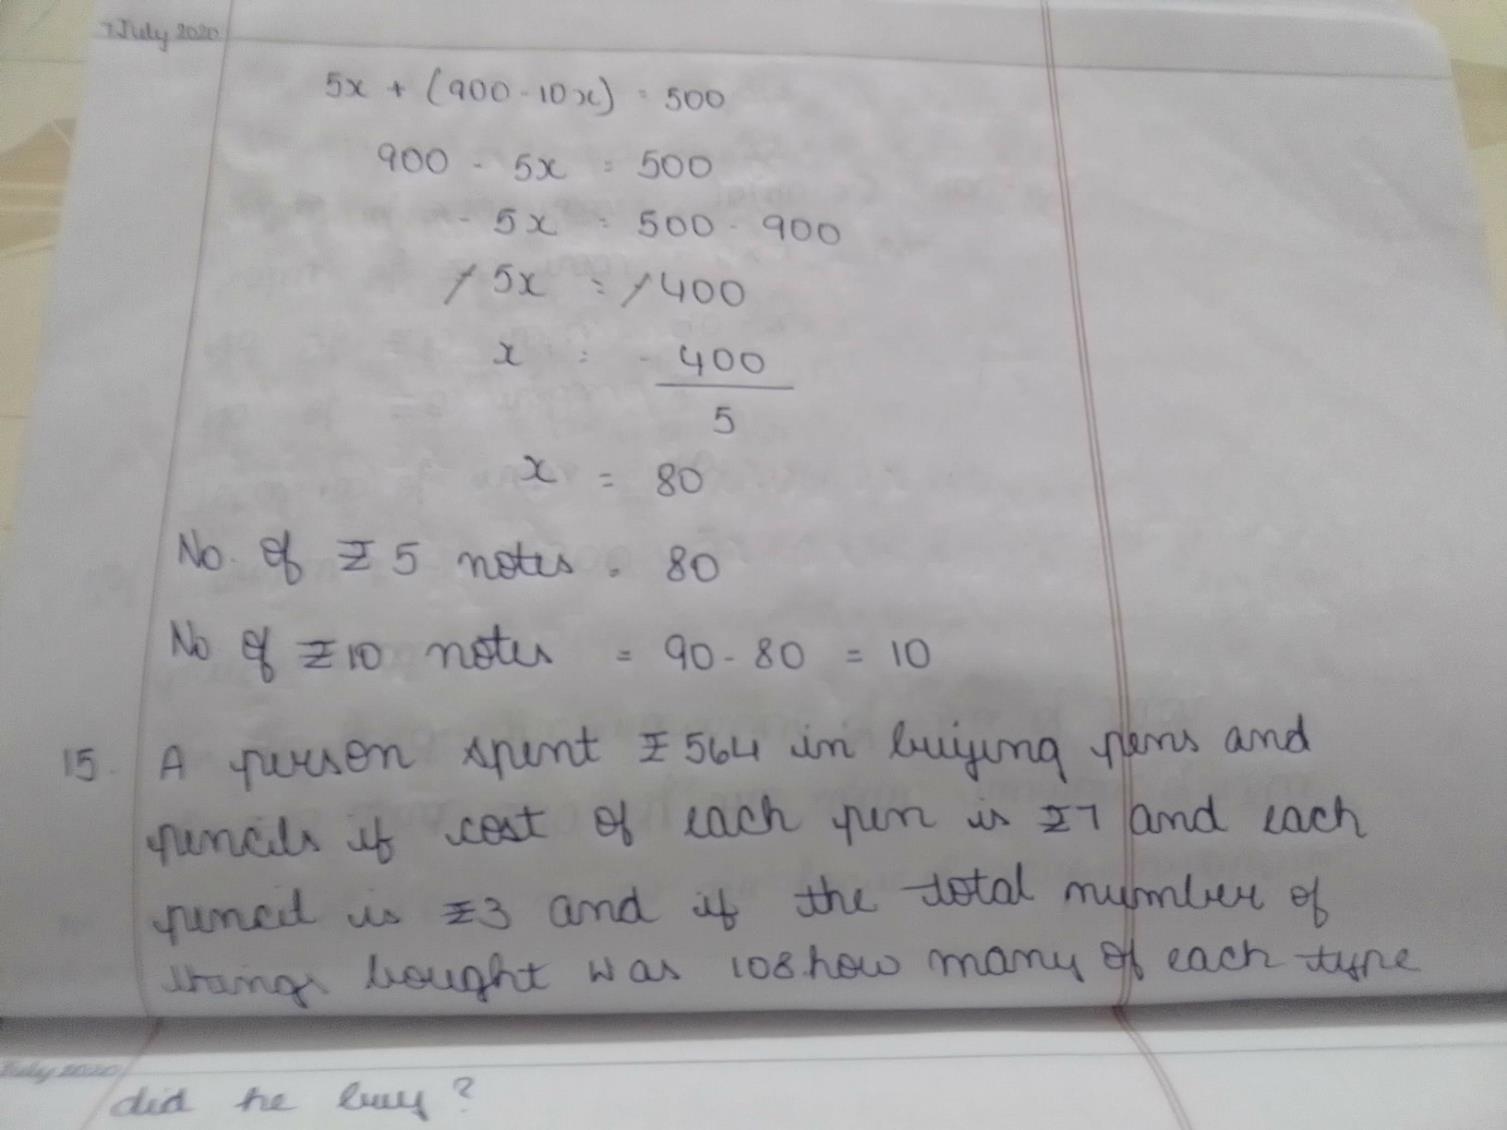 7 July 2020
5x + (900 - 10x) = 500
900 - 5x = 500
- 5x = 500 - 900
- 5x = - 400
x = - 400
5
x = 80
No. of ₹ 5 notes = 80
No of ₹ 10 notes = 90 - 80 = 10
15. A person spent ₹ 564 in buying pens and
pencils if cost of each pen is ₹7 and each
pencil is ₹3 and if the total number of
things bought was 108. how many of each type
July 2020
did he buy?